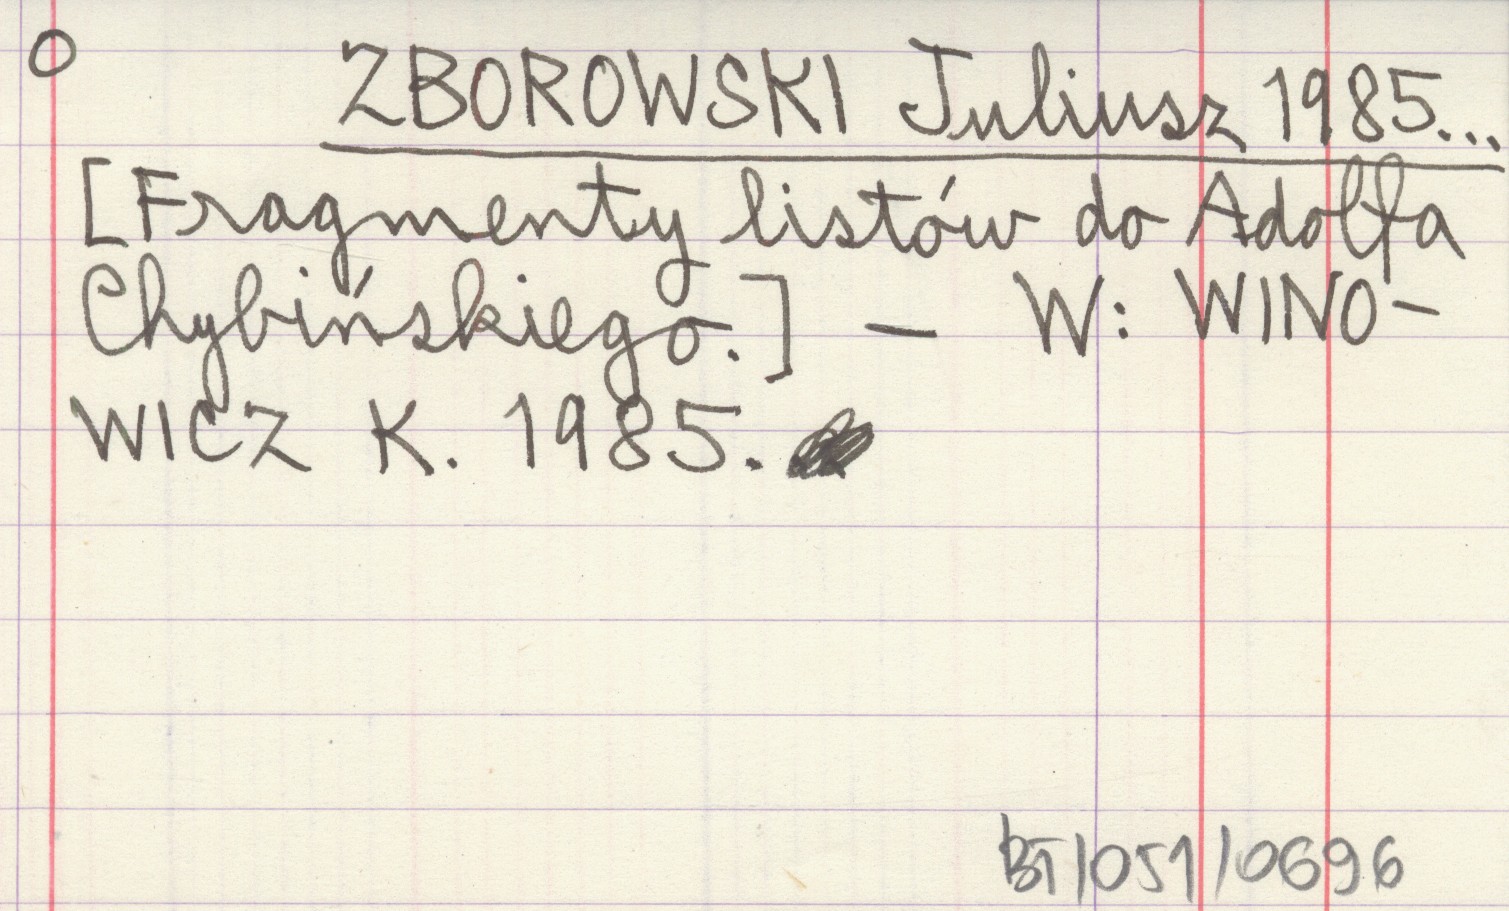 O
ZBOROWSKI Juliusz 1985...
[Fragmenty listów do Adolfa
Chybińskiego.] — W: WINO-
WICZ K. 1985.
BT/051/0696